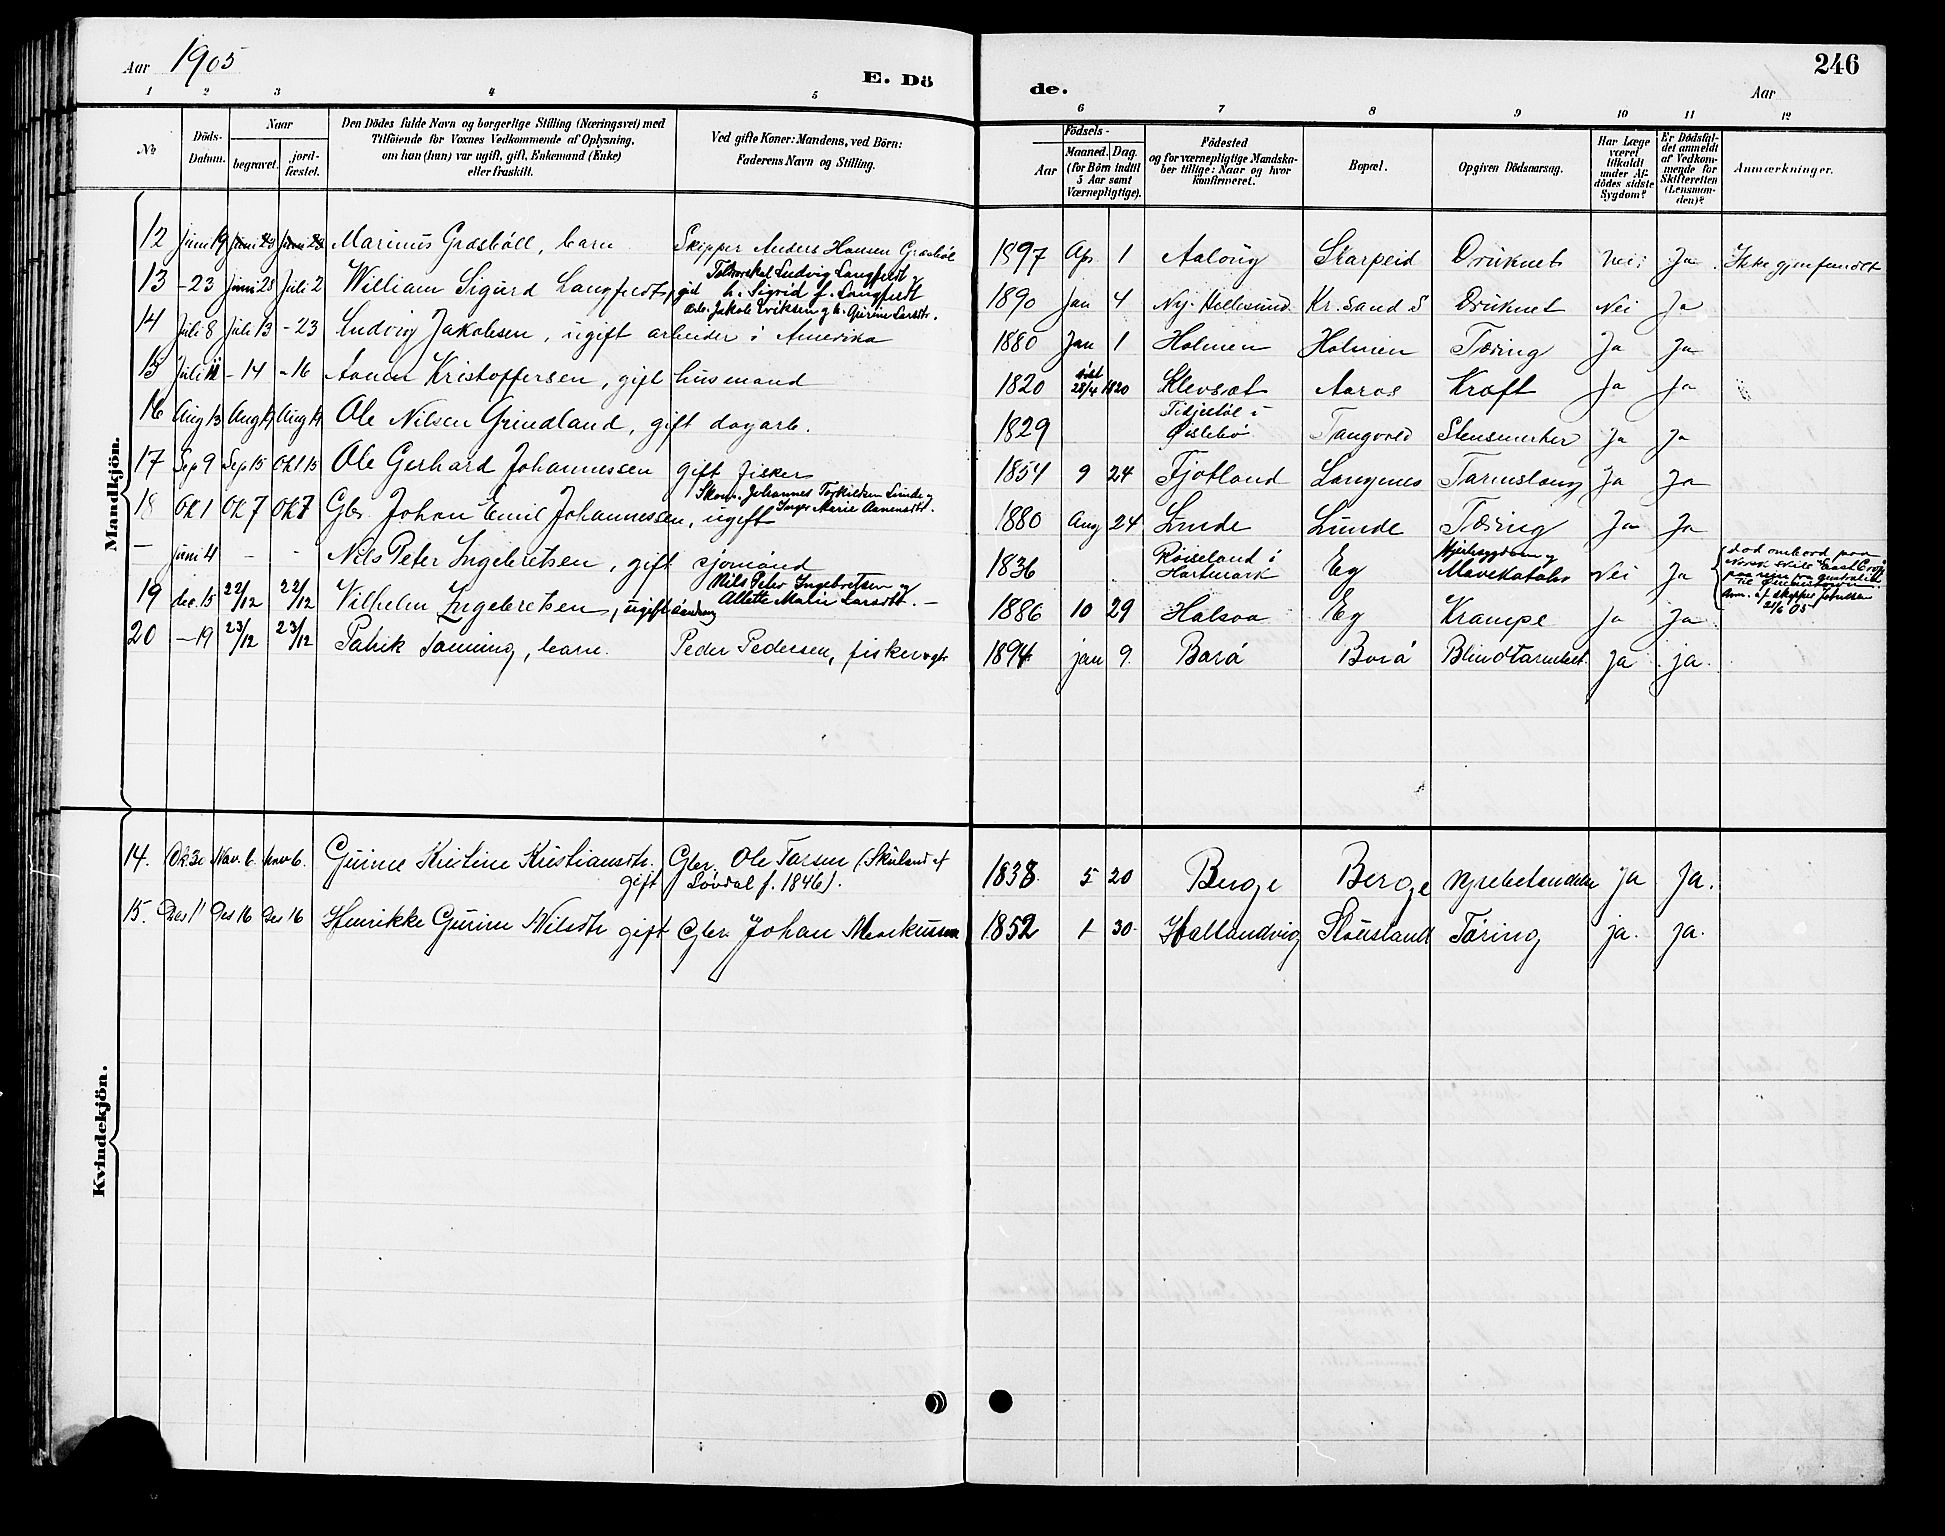 Aar 1905
E. Dö
de.
246
Aar
1 2 3 4 5
6 7 8 9 10 11 12
No
Döds-Datum.
Naar
begravet.
jord-fæstet.
Den Dödes fulde Navn og borgerlige Stilling (Næringsvei) med
Tilföiende for Voxnes Vedkommende af Oplysning,
om han (hun) var ugift, gift, Enkemand (Enke)
eller fraskilt.
Ved gifte Koner: Mandens, ved Börn:
Faderens Navn og Stilling.
Födsels-
Aar
Maaned. Dag.
(for Börn indtil
5 Aar samt
Værnepligtige).
Födested
og for værnepligtige Mandska-
ber tillige: Naar og hvor
konfirmeret.
Bopæl.
Opgiven Dödsaarsag.
Har Læge
været
tilkaldt
under Af-
dödes sidste
Sygdom?
Er Dödsfal-
det anmeldt
af Vedkom-
mende for
Skifteretten
(Lensman-
den)?
Anmærkninger.
Mandkjön.
12 Juni 19 Marinus Græsböll, barn Skipper Anders Hansen Græsböl 1897 Apr 1 Aalborg Skarpeid Druknet Nei Ja Ikke gjenfundet
13 -23 Juni 28 Juli 2 William Sigurd Langfeldt, Ludvig Langfeldt og h. Sigrid f. Langfeldt 1890 Jan 4 Ny-Hellesund Kr. Sand S Druknet Nei Ja
14 Juli 8 Juli 13 -23 Ludvig Jakobsen, ugift arbeider i Amerika Arb. Jakob Eriksen og h. Gurine Larsdt. 1880 Jan 1 Holmen Holmen Tæring Ja Ja
15 Juli 11 -14 -16 Aanen Kristoffersen, gift husmand 1820 døbt 28/4 1820 Klevset Aaros Kræft Ja Ja
16 Aug 13 Aug 19 Aug 19 Ole Nilsen Grindland, gift dagarb. 1829 i Øislebø Tangvold Stensmerter Ja Ja
17 Sep 9 Sep 15 Okt 15 Ole Gerhard Johannessen gift fisker 1854 9 24 Fjotland Langenes Tarmslyng Ja Ja
18 Okt 1 Okt 7 Okt 7 Gbr. Johan Emil Johannessen, ugift Skom. Johannes Torkildsen Lunde og Inger Marie Aanensdt. 1880 Aug 24 Lunde Lunde Tæring Ja Ja
- Juni 4 - - Nils Peter Ingebretsen, gift sjømand 1836 Røiseland i Hartmark Eg Hjertesygdom og Mavekatahr Nei Ja død ombord paa
19 dec. 15 22/12 22/12 Vilhelm Ingebretsen, ugift sømand Nils Peter Ingebretsen og Allette Malie Larsdtt. - 1886 10 29 Halsaa Eg Krampe Ja Ja
20 -19 23/12 23/12 Patrik Tanning, barn. Peder Pedersen, fisker og gbr 1894 jan 9. Borø Borø Blindtarmbet. Ja ja.
Kvindekjön.
14. Okt 30 Nov. 6 Nov 6. Gurine Kristine Kristiansdtr. gift Gbr. Ole Tarsen (Skuland af Løvdal f. 1846). 1838 5 20 Berge Berge Hjertebetændelse Ja Ja.
15. Des 11 Des 16 Des 16 Henrikke Gurine Nilsdtr gift Gbr. Johan Markussen 1852 1 30. Hallandvig Stousland Tæring ja. Ja.